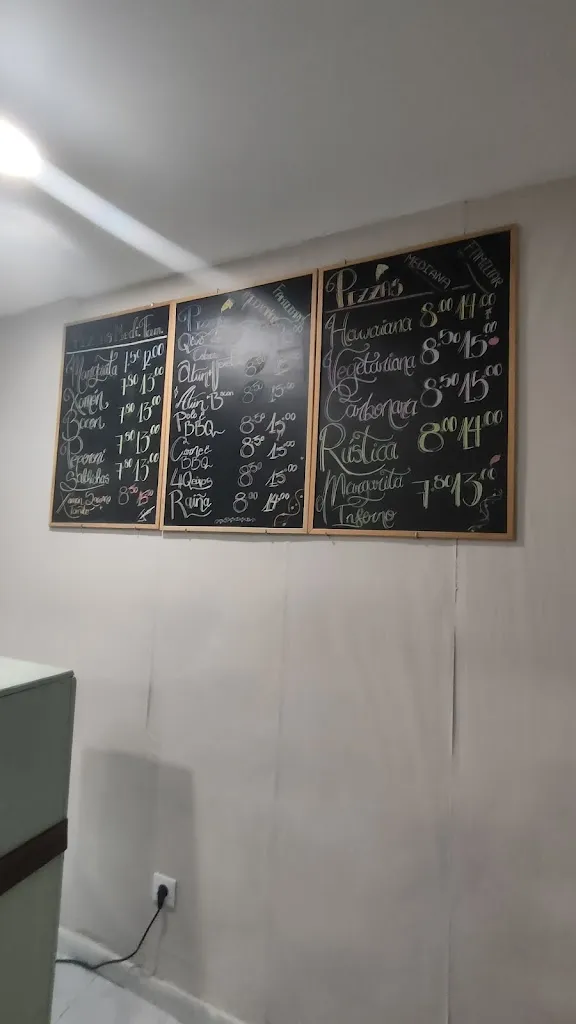 PIZZAS Medi Fam.
Margarita 7.50 12.00
Xamon 7.80 13.00
Bacon 7.50 13.00
Peperoni 7.50 13.00
Salchichas 7.50 13.00
Xamon Serrano 8.50 15.00
Atun + Bacon 8.50 15.00
Pollo BBQ 8.50 15.00
Carne BBQ 8.50 15.00
4 Queixos 8.50 15.00
Raiña 8.00 14.00
PIZZAS MEDIANA FAMILIAR
Hawaiana 8.00 14.00
Vegetariana 8.50 15.00
Carbonara 8.50 15.00
Rustica 8.00 14.00
Margarita Inferno 7.50 13.00